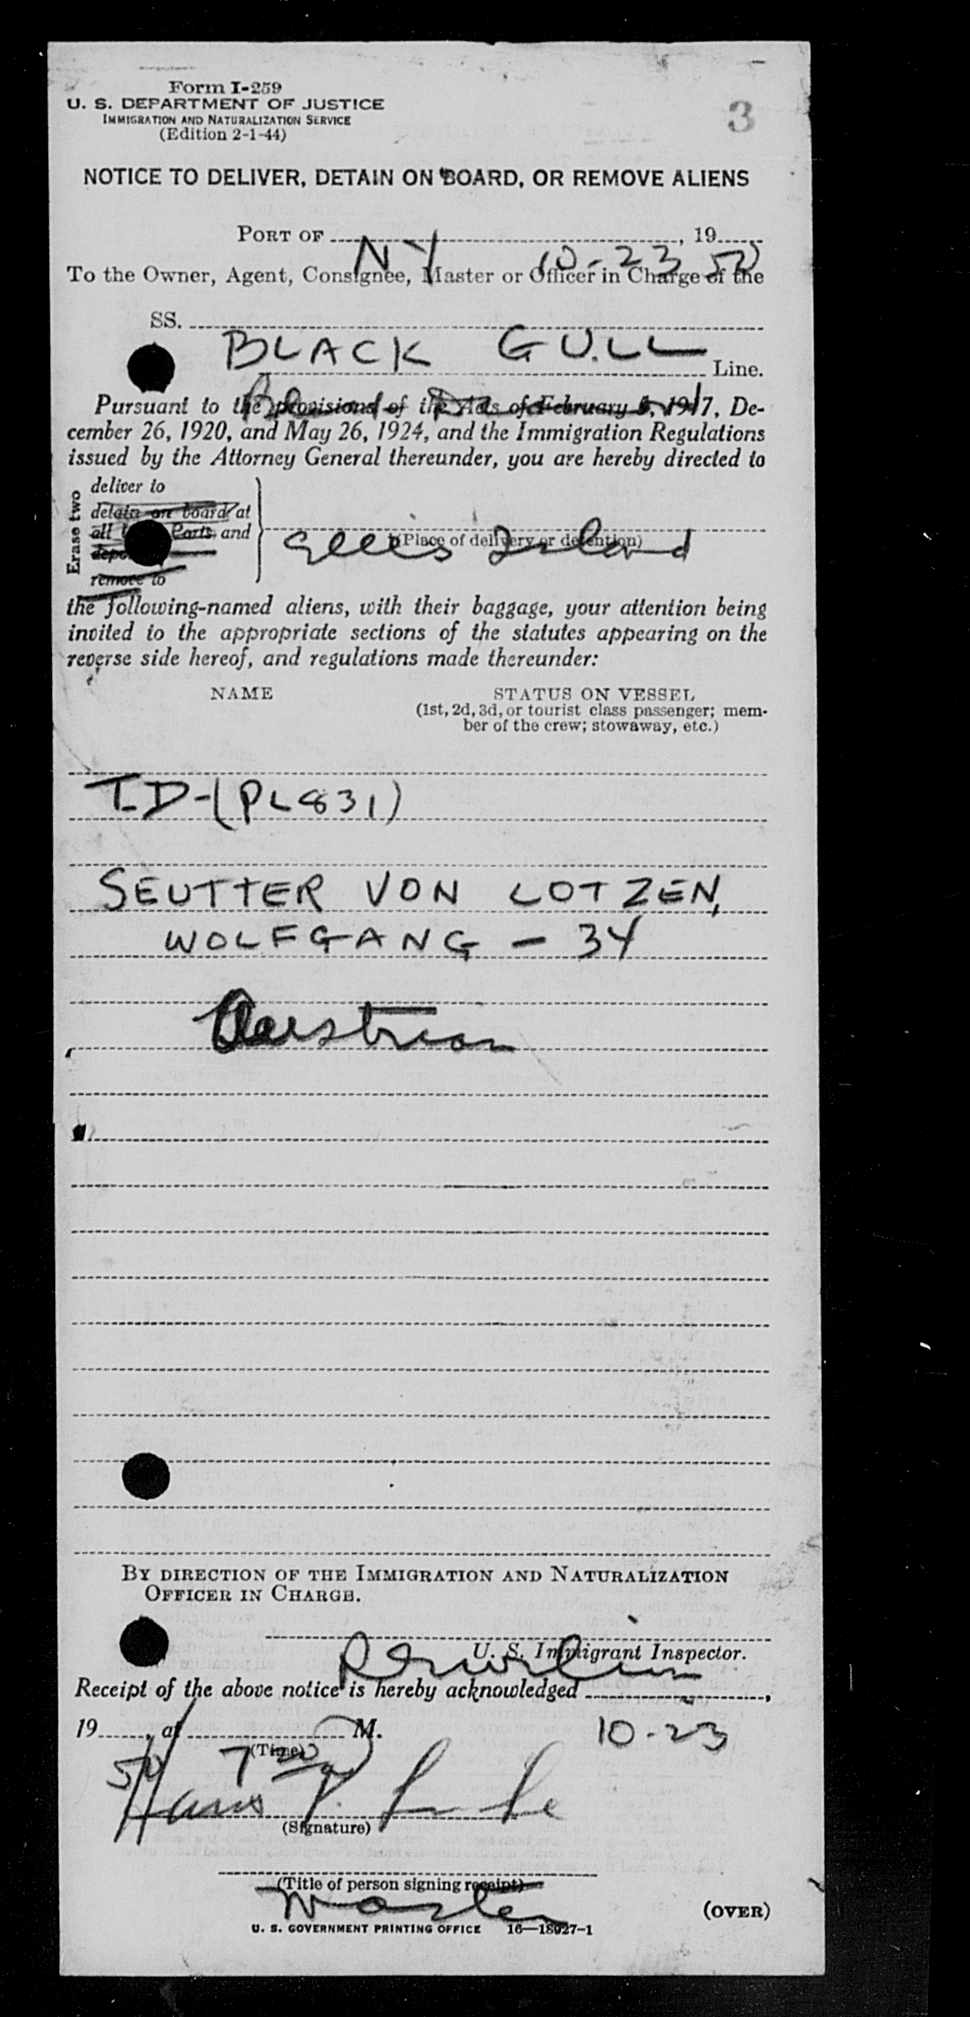 Form I-259
U. S. DEPARTMENT OF JUSTICE
IMMIGRATION AND NATURALIZATION SERVICE
(Edition 2-1-44)
3
NOTICE TO DELIVER, DETAIN ON BOARD, OR REMOVE ALIENS
PORT OF NY 10-23, 1950
To the Owner, Agent, Consignee, Master or Officer in Charge of the
SS. BLACK GULL
Line.
Pursuant to the provisions of the Acts of February 5, 1917, De-
cember 26, 1920, and May 26, 1924, and the Immigration Regulations
issued by the Attorney General thereunder, you are hereby directed to
Erase two
deliver to
detain on board at
all and
remove to
Ellis Island
(Place of delivery or detention)
the following-named aliens, with their baggage, your attention being
invited to the appropriate sections of the statutes appearing on the
reverse side hereof, and regulations made thereunder:
NAME STATUS ON VESSEL
(1st, 2d, 3d, or tourist class passenger; mem-
ber of the crew; stowaway, etc.)
T.D-(PL831)
SEUTTER VON LOTZEN,
WOLFGANG - 34
Austrian
BY DIRECTION OF THE IMMIGRATION AND NATURALIZATION
OFFICER IN CHARGE.
U. S. Immigrant Inspector.
Receipt of the above notice is hereby acknowledged 10-23,
1950, at 720 M.
(Time)
Hans
(Signature)
Master
(Title of person signing receipt)
(OVER)
U. S. GOVERNMENT PRINTING OFFICE 16—18027-1